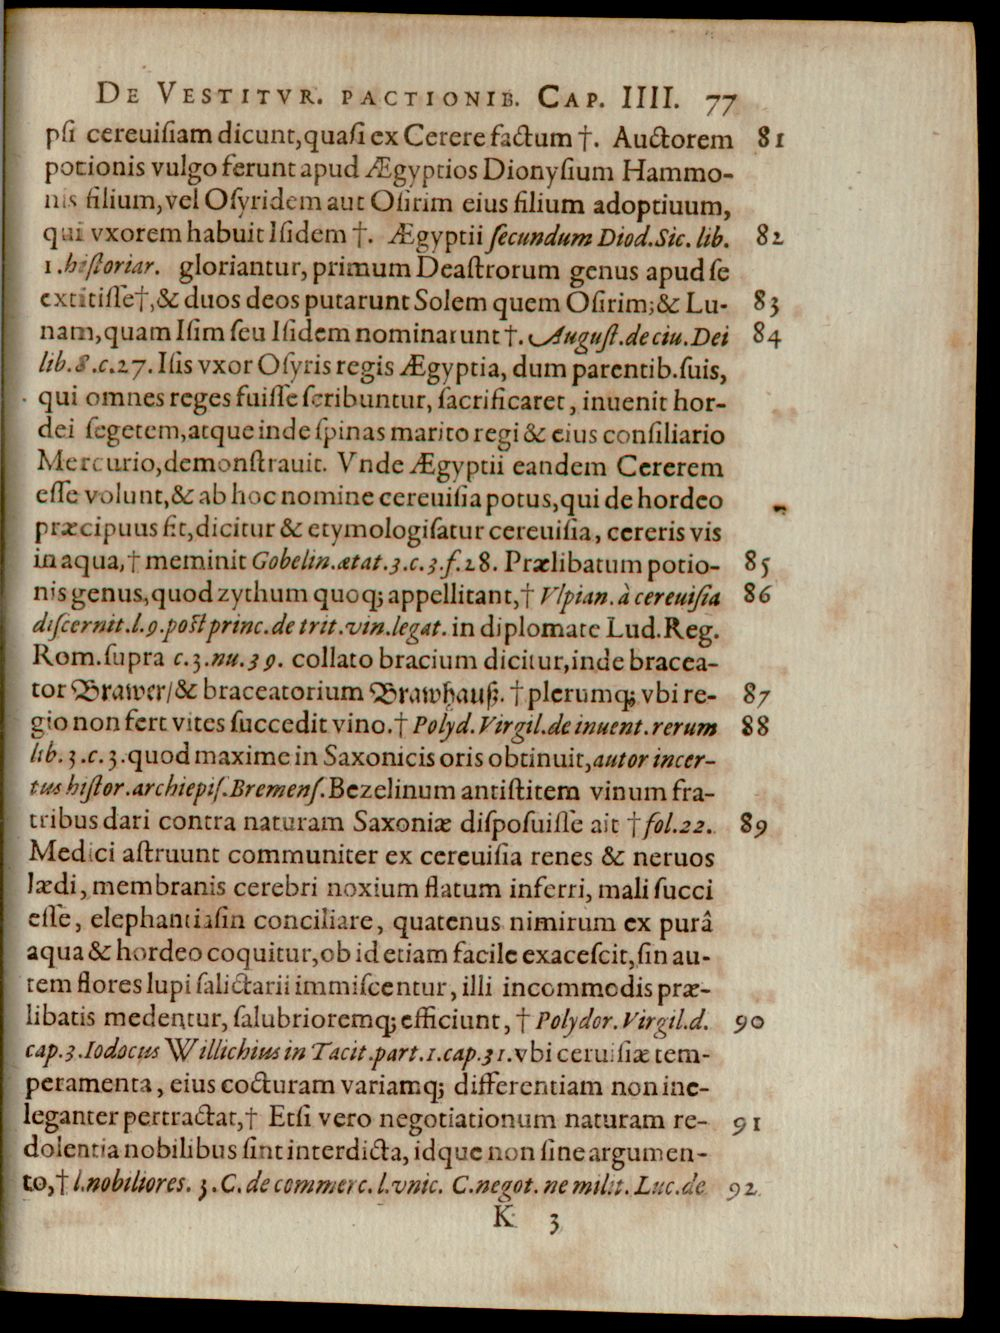 DE VESTITVR. PACTIONIB. CAP. IIII. 77
psi cereuisiam dicunt,quasi ex Cerere factum †. Auctorem 81
potionis vulgo ferunt apud Ægyptios Dionysium Hammo-
nis filium,vel Osyridem aut Osirim eius filium adoptiuum,
qui vxorem habuit Isidem †. Ægyptii secundum Diod.Sic. lib. 82
1.historiar. gloriantur, primum Deastrorum genus apud se
extitisse†,& duos deos putarunt Solem quem Osirim;& Lu- 83
nam,quam Isim seu Isidem nominarunt †. August.de ciu.Dei 84
lib.8.c.27. Isis vxor Osyris regis Ægyptia, dum parentib.suis,
qui omnes reges fuisse scribuntur, sacrificaret, inuenit hor-
dei segetem,atque inde spinas marito regi & eius consiliario
Mercurio,demonstrauit. Vnde Ægyptii eandem Cererem
esse volunt,& ab hoc nomine cereuisia potus,qui de hordeo
præcipuus fit,dicitur & etymologisatur cereuisia, cereris vis
in aqua,† meminit Gobelin.ætat.3.c.3.f.28. Prælibatum potio- 85
nis genus,quod zythum quoq; appellitant,† Vlpian. à cereuisia 86
discernit.l.9.post princ.de trit.vin.legat. in diplomate Lud.Reg.
Rom.supra c.3.nu.39. collato bracium dicitur,inde bracea-
tor Brawer/& braceatorium Brawhauß. † plerumq; vbi re- 87
gio non fert vites succedit vino.† Polyd.Virgil.de inuent.rerum 88
lib.3.c.3.quod maxime in Saxonicis oris obtinuit,autor incer-
tus histor.archiepis.Bremens.Bezelinum antistitem vinum fra-
tribus dari contra naturam Saxoniæ disposuisse ait † fol.22. 89
Medici astruunt communiter ex cereuisia renes & neruos
lædi, membranis cerebri noxium flatum inferri, mali succi
esse, elephantiasin conciliare, quatenus nimirum ex purâ
aqua & hordeo coquitur,ob id etiam facile exacescit,sin au-
tem flores lupi salictarii immiscentur, illi incommodis præ-
libatis medentur, salubrioremq; efficiunt, † Polydor. Virgil.d. 90
cap.3.Iodocus Willichius in Tacit.part.1.cap.31.vbi ceruisiæ tem-
peramenta, eius cocturam variamq; differentiam non ine-
leganter pertractat,† Etsi vero negotiationum naturam re- 91
dolentia nobilibus sint interdicta, idque non sine argumen-
to,† l.nobiliores. 3.C. de commerc.l.vnic. C.negot. ne milit. Luc.de 92
K 3